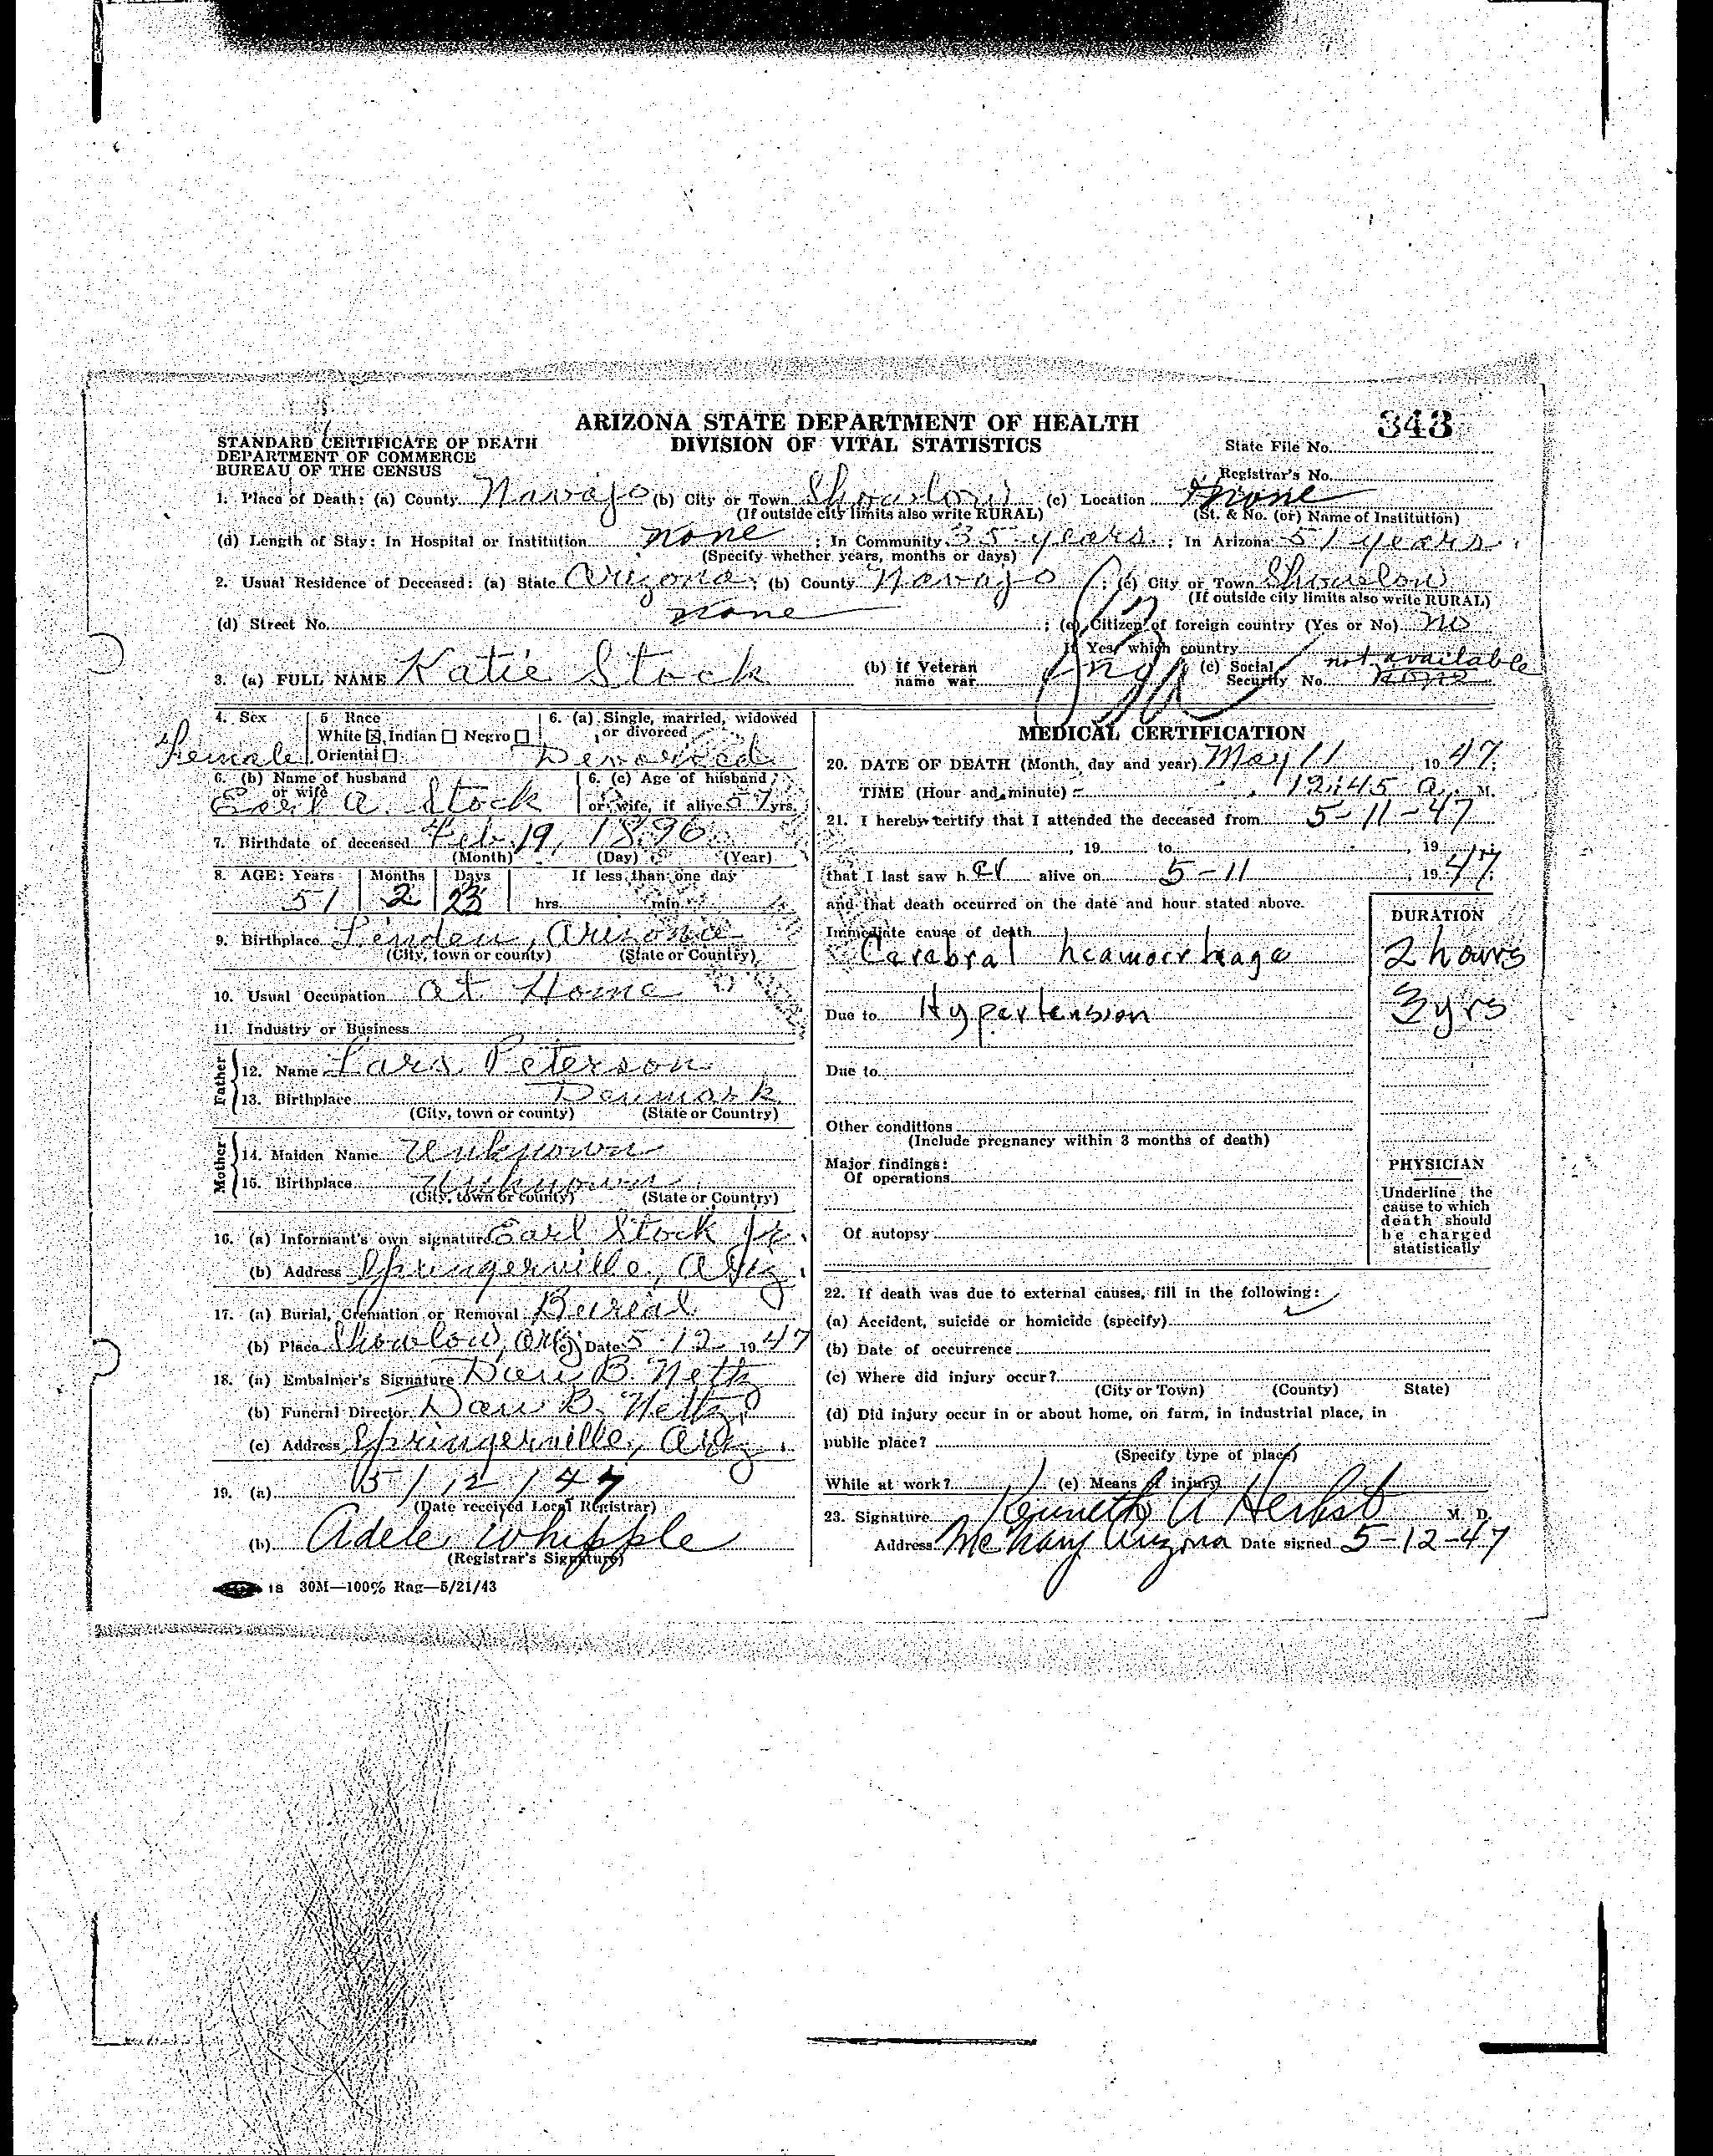 ARIZONA STATE DEPARTMENT OF HEALTH
DIVISION OF VITAL STATISTICS
343
State File No.
STANDARD CERTIFICATE OF DEATH
DEPARTMENT OF COMMERCE
BUREAU OF THE CENSUS
Registrar's No.
1. Place of Death: (a) County Navajo (b) City or Town Showlow (c) Location none
(If outside city limits also write RURAL) (St. & No. (or) Name of Institution)
(d) Length of Stay: In Hospital or Institution none ; In Community 35 years ; In Arizona 51 years
(Specify whether years, months or days)
2. Usual Residence of Deceased: (a) State Arizona ; (b) County Navajo ; (c) City or Town Showlow
(If outside city limits also write RURAL)
(d) Street No. none ; (e) Citizen of foreign country (Yes or No) no
If Yes, which country
3. (a) FULL NAME Katie Stock (b) If Veteran name war (c) Social Security No. not available none
4. Sex Female
5. Race
White ☒ Indian ☐ Negro ☐
Oriental ☐
6. (a) Single, married, widowed
or divorced Devorced
6. (b) Name of husband
or wife Earl A. Stock
6. (c) Age of husband
or wife, if alive 57 yrs.
7. Birthdate of deceased Feb. 19, 1896
(Month) (Day) (Year)
8. AGE: Years Months Days If less than one day
51 2 23 hrs. min.
9. Birthplace Linden, Arizona
(City, town or county) (State or Country)
10. Usual Occupation at Home
11. Industry or Business
Father
12. Name Lars Peterson
13. Birthplace Denmark
(City, town or county) (State or Country)
Mother
14. Maiden Name Unknown
15. Birthplace Unknown
(City, town or county) (State or Country)
16. (a) Informant's own signature Earl Stock Jr.
(b) Address Springerville, Ariz.
17. (a) Burial, Cremation or Removal Bureal
(b) Place Showlow, Ariz (c) Date 5-12 1947
18. (a) Embalmer's Signature Dan B. Neth
(b) Funeral Director Dan B. Neth
(c) Address Springerville, Ariz.
19. (a) 5/12/47
(Date received Local Registrar)
(b) Adele Whipple
(Registrar's Signature)
18 30M—100% Rag—5/21/43
MEDICAL CERTIFICATION
20. DATE OF DEATH (Month, day and year) May 11, 1947.
TIME (Hour and minute) 12:45 a. M.
21. I hereby certify that I attended the deceased from 5-11-47
, 19 to , 19
that I last saw her alive on 5-11, 1947.
and that death occurred on the date and hour stated above.
DURATION
Immediate cause of death
Carebral heamorrhage 2 hours
Due to Hypertension 3 yrs
Due to
Other conditions
(Include pregnancy within 3 months of death)
Major findings:
Of operations
Of autopsy
PHYSICIAN
Underline the
cause to which
death should
be charged
statistically
22. If death was due to external causes, fill in the following:
(a) Accident, suicide or homicide (specify)
(b) Date of occurrence
(c) Where did injury occur?
(City or Town) (County) State)
(d) Did injury occur in or about home, on farm, in industrial place, in
public place?
(Specify type of place)
While at work? (e) Means of injury
23. Signature Kenneth A Herbst M. D.
Address McNary Arizona Date signed 5-12-47